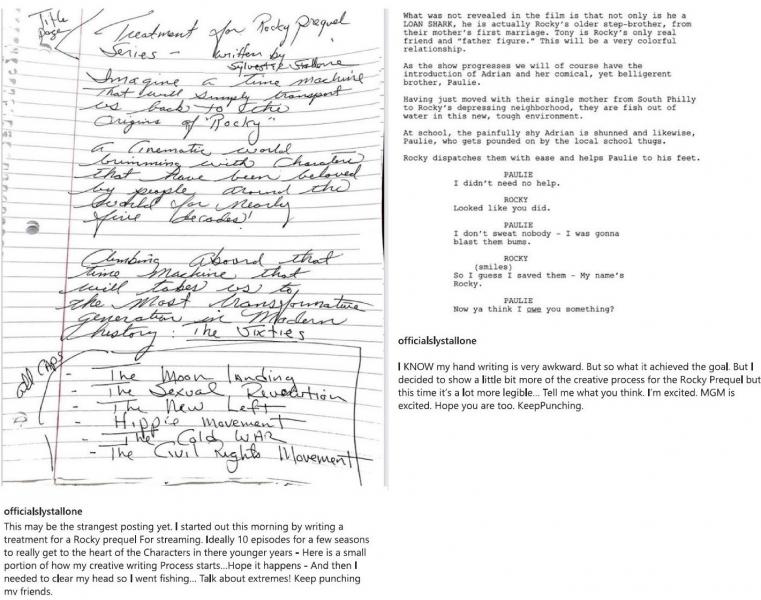 Title
page
Treatment for Rocky Prequel
Series - written by
Sylvester Stallone
Imagine a time machine
That will simply transport
us back to the
Origins of "Rocky"
a Cinematic world
brimming with Characters
that have been beloved
by people around the
World for Nearly
five decades!
Climbing Aboard that
time Machine that
will takes us to
the Most transformative
generation in Modern
history: The Sixties
add CAPS
- The Moon Landing
- The Sexual Revolution
- The New Left
- Hippie Movement
- The Cold WAR
- The Civil Rights Movement
officialslystallone
This may be the strangest posting yet. I started out this morning by writing a
treatment for a Rocky prequel For streaming. Ideally 10 episodes for a few seasons
to really get to the heart of the Characters in there younger years - Here is a small
portion of how my creative writing Process starts...Hope it happens - And then I
needed to clear my head so I went fishing... Talk about extremes! Keep punching
my friends.
What was not revealed in the film is that not only is he a
LOAN SHARK, he is actually Rocky's older step-brother, from
their mother's first marriage. Tony is Rocky's only real
friend and "father figure." This will be a very colorful
relationship.
As the show progresses we will of course have the
introduction of Adrian and her comical, yet belligerent
brother, Paulie.
Having just moved with their single mother from South Philly
to Rocky's depressing neighborhood, they are fish out of
water in this new, tough environment.
At school, the painfully shy Adrian is shunned and likewise,
Paulie, who gets pounded on by the local school thugs.
Rocky dispatches them with ease and helps Paulie to his feet.
PAULIE
I didn't need no help.
ROCKY
Looked like you did.
PAULIE
I don't sweat nobody - I was gonna
blast them bums.
ROCKY
(smiles)
So I guess I saved them - My name's
Rocky.
PAULIE
Now ya think I owe you something?
officialslystallone
I KNOW my hand writing is very awkward. But so what it achieved the goal. But I
decided to show a little bit more of the creative process for the Rocky Prequel but
this time it's a lot more legible... Tell me what you think. I'm excited. MGM is
excited. Hope you are too. KeepPunching.